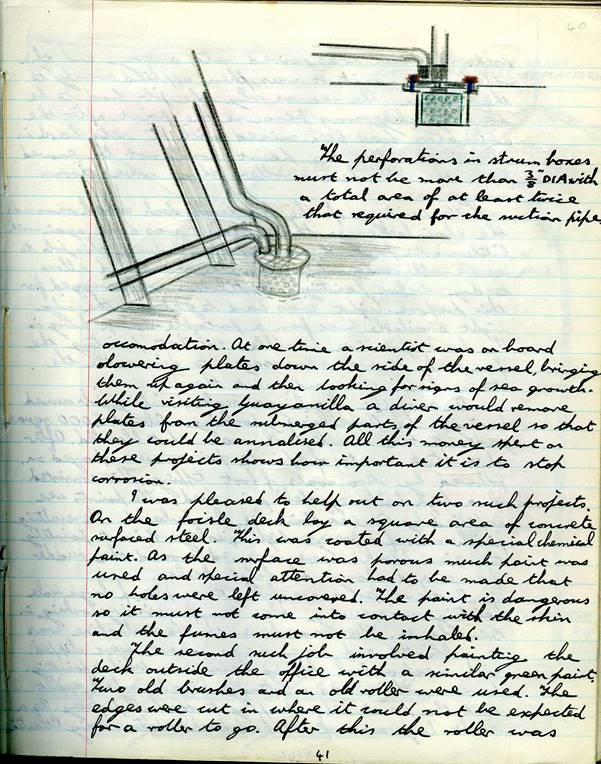 40
The perforations in strum boxes
must not be more than 3/8" DIA with
a total area of at least twice
that required for the suction pipe.
accomodation. At one time a scientist was on board
olowering plates down the side of the vessel, bringing
them up again and then looking for signs of sea growth.
While visiting Guayanilla a diver would remove
plates from the submerged parts of the vessel so that
they could be annalised. All this money spent on
these projects shows how important it is to stop
corrosion.
I was pleased to help out on two such projects.
On the foicsle deck lay a square area of concrete
surfaced steel. This was coated with a special chemical
paint. As the surface was porous much paint was
used and special attention had to be made that
no holes were left uncovered. The paint is dangerous
so it must not come into contact with the skin
and the fumes must not be inhaled.
The second such job involved painting the
deck outside the office with a similer green paint.
Two old brushes and an old roller were used. The
edges were cut in where it could not be expected
for a roller to go. After this the roller was
41